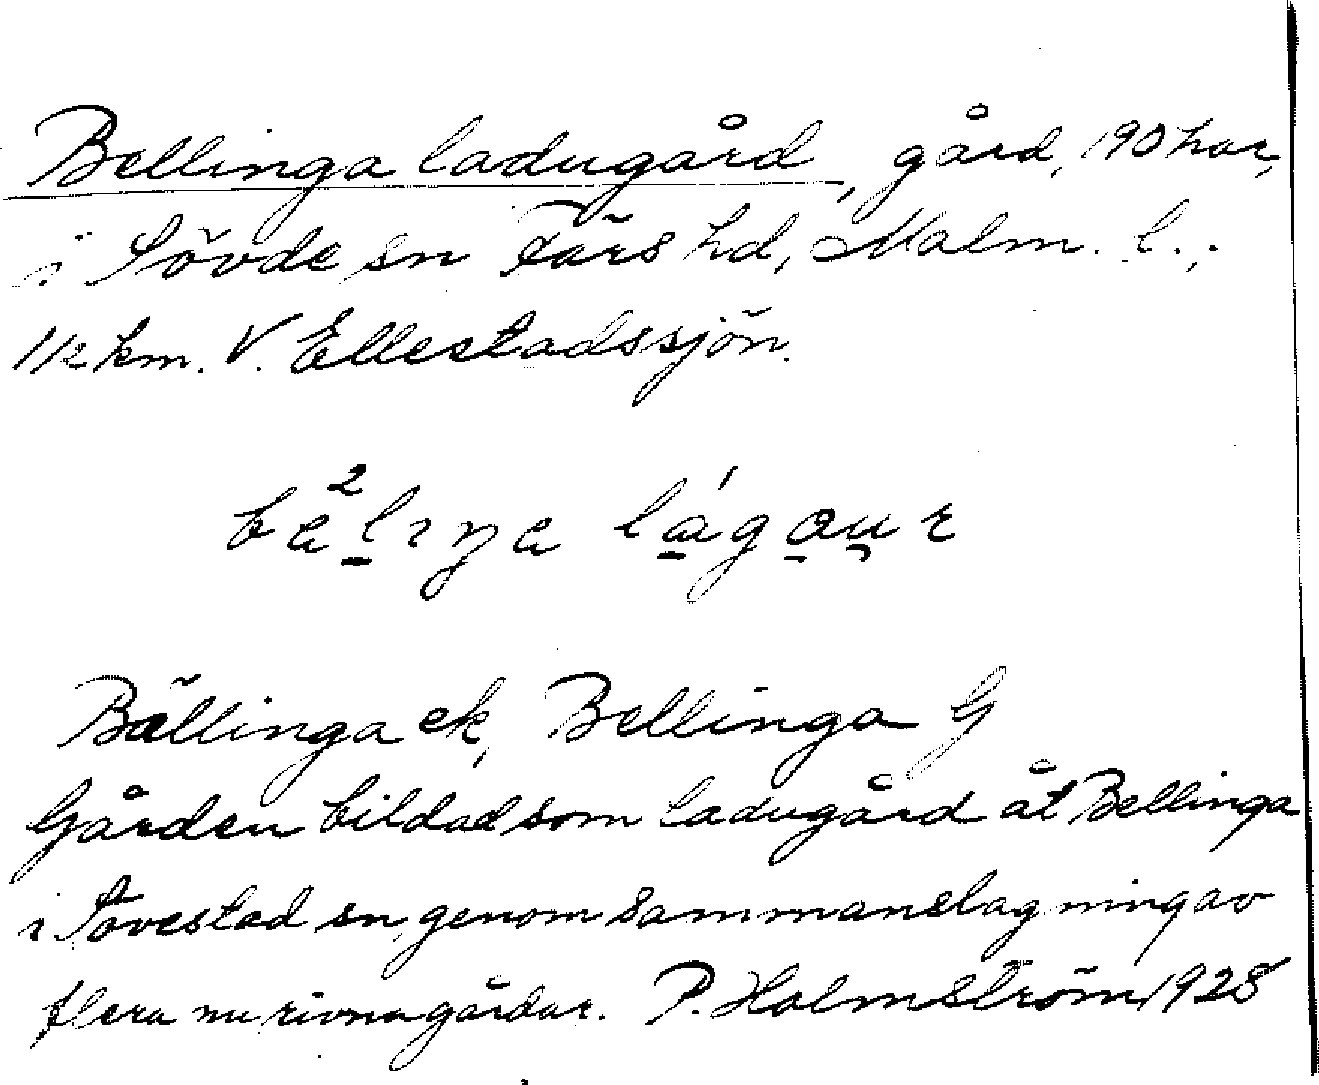 Bellinga ladugård, gård, 190 har,
i Sövde sn Färs hd, Malm. l.,
1 1/2 km. V. Ellestadssjön.
Bällinga ek, Bellinga G
Gården bildad som ladugård åt Bellinga
i Sövestad sn, genom sammanslagning av
flera nu rivna gårdar. P. Holmström 1928